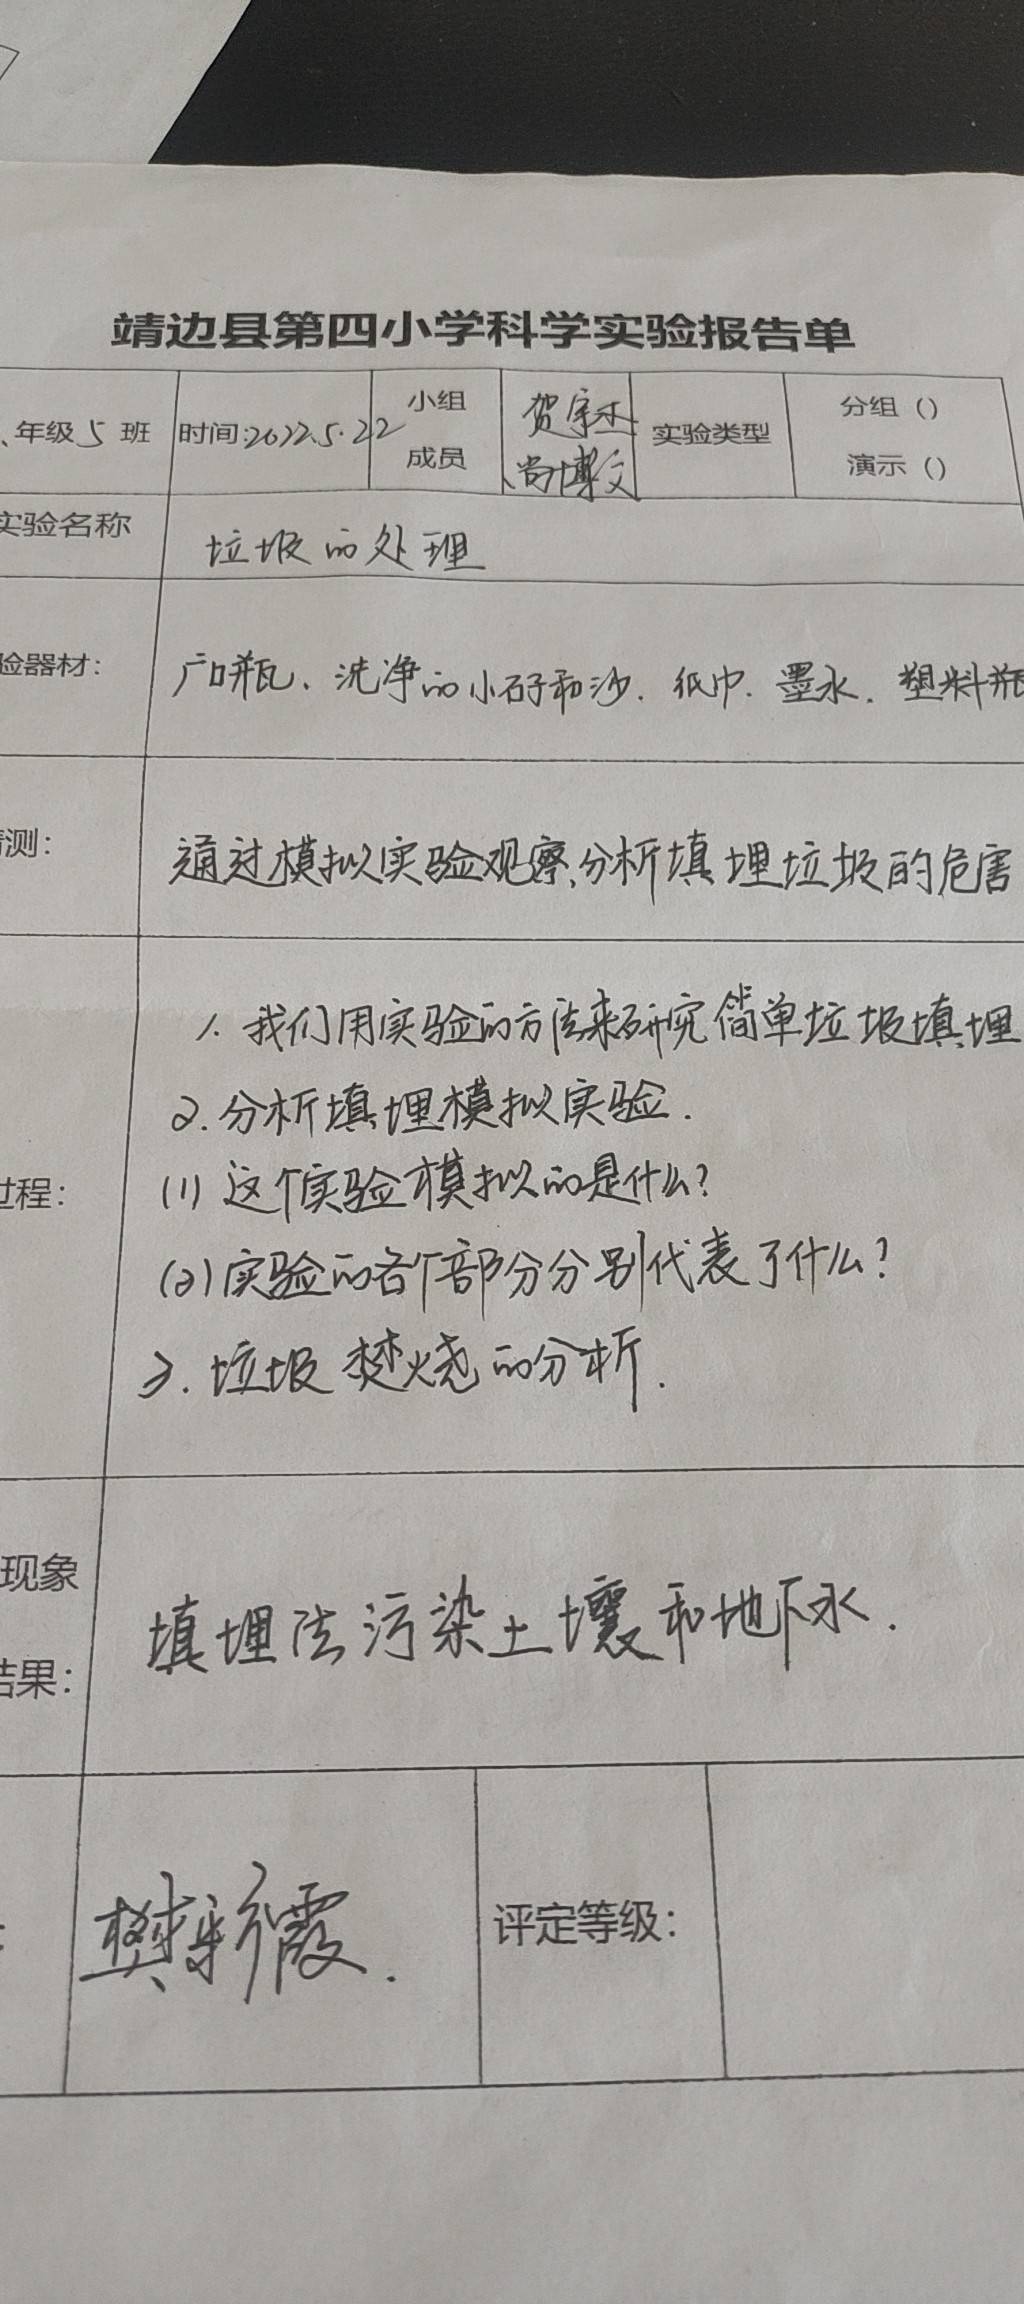 靖边县第四小学科学实验报告单
年级 5 班 时间:2022.5.22 小组成员 贺宇 尚博文 实验类型 分组（） 演示（）
实验名称 垃圾的处理
验器材: 广口瓶、洗净的小石子和沙. 纸巾. 墨水. 塑料瓶
测: 通过模拟实验观察,分析填埋垃圾的危害
1. 我们用实验的方法来研究简单垃圾填埋
2. 分析填埋模拟实验.
过程: (1) 这个实验模拟的是什么?
(2) 实验的各个部分分别代表了什么?
3. 垃圾焚烧的分析.
现象
结果: 填埋法污染土壤和地下水.
樊新霞. 评定等级: